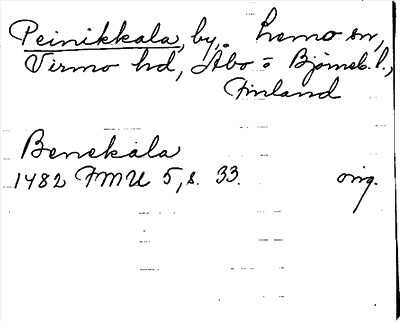 Peinikkala, by, Lemo sn,
Virmo hd, Åbo = Björneb. l.,
Finland
Benekala
1482 FMU 5, s. 33. orig.